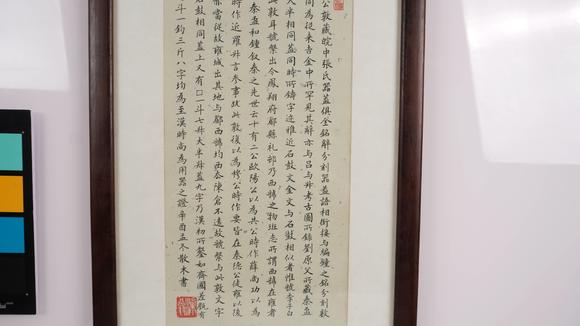 公敦藏皖中張氏器蓋俱全銘辭分刻器蓋語相銜接與編鐘之銘分刻數
同為從來吉金中所罕見其辭亦與呂與叔考古圖所錄劉原父所藏秦盄
大半相同蓋同時所鑄字迹雅近石鼓文金文與石鼓相似者惟虢季子白
此敦耳號槃出今鳳翔府郿縣禮邨乃西虢之物班志所謂西虢在雍者
秦盄和鐘叙秦之先世云十有二公歐陽公以為共公時作薛尚功以為
時作近羅叔言參事跋此敦後以為穆公時作要皆在秦德公徙雍以後
亦當從故雍城出其地與郿西虢均西奈陳倉不遠故虢槃與此敦文字
石鼓相同蓋上又有□一斗七升大半升蓋九字乃漢初所鑿如齊國差甔有
斗一鈞三斤八字均為至漢時尚為用器之證辛酉孟冬散木書